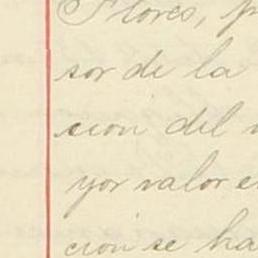 Flores, p
sor de la
cion del v
yor valor e
cion se ha